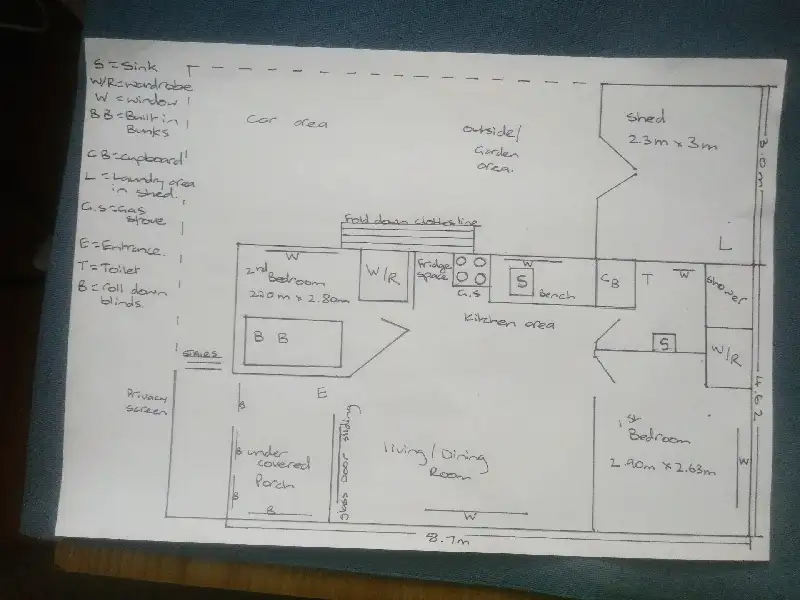 S = Sink
W/R = wardrobe
W = window
BB = Built in
Bunks
CB = cupboard
L = Laundry area
in shed.
G.S = Gas
stove
E = Entrance.
T = Toilet
B = roll down
blinds.
Car area
outside/
Garden
area.
Shed
2.3m x 3m
3.0m
L
Fold down clothes line
W
2nd
Bedroom
2.20m x 2.80m
W/R
Fridge
space
G.S
W
S
Bench
CB
T
W
Shower
Kitchen area
S
W/R
B B
STAIRS
Privacy
screen
E
B
B
B
B
under
covered
Porch
Glass Door sliding
Living/Dining
Room
W
1st
Bedroom
2.90m x 2.63m
W
4.62
8.7m